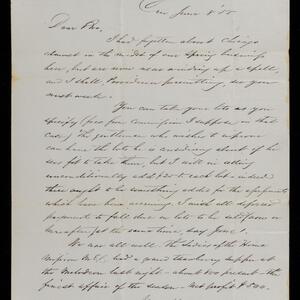 June 8 '55
Dear Bro.
I had forgotten about Chicago
almost in the midst of our Spring business
here, but are now winding up a spell,
and I shall, Providence permitting, see you
next week.
You can take your lots as you
specify (free from commission I suppose in that
case). The gentleman who wishes to improve
can have the lots he is enquiring about if he
sees fit to take them, but I will in selling
unconditionally add $25 to each lot - indeed
there ought to be something added for the
which have been accruing. I wish all deferred
payments to fall due on lots to be sold
hereafter at the same time, say June 1.
We are all well. The Ladies of the Home
Mission M.E.C. had a grand strawberry supper at
the Melodeon last night - about 800 present - the
finest affair of the season - net profit $500.